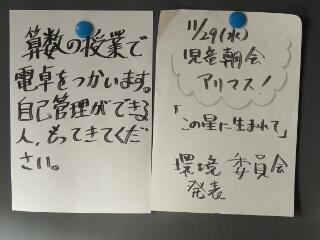 算数の授業で
電卓をつかいます。
自己管理ができる
人、もってきてくだ
さい。
11/29(水)
児童朝会
アリマス!
「この星に生まれて」
環境委員会
発表